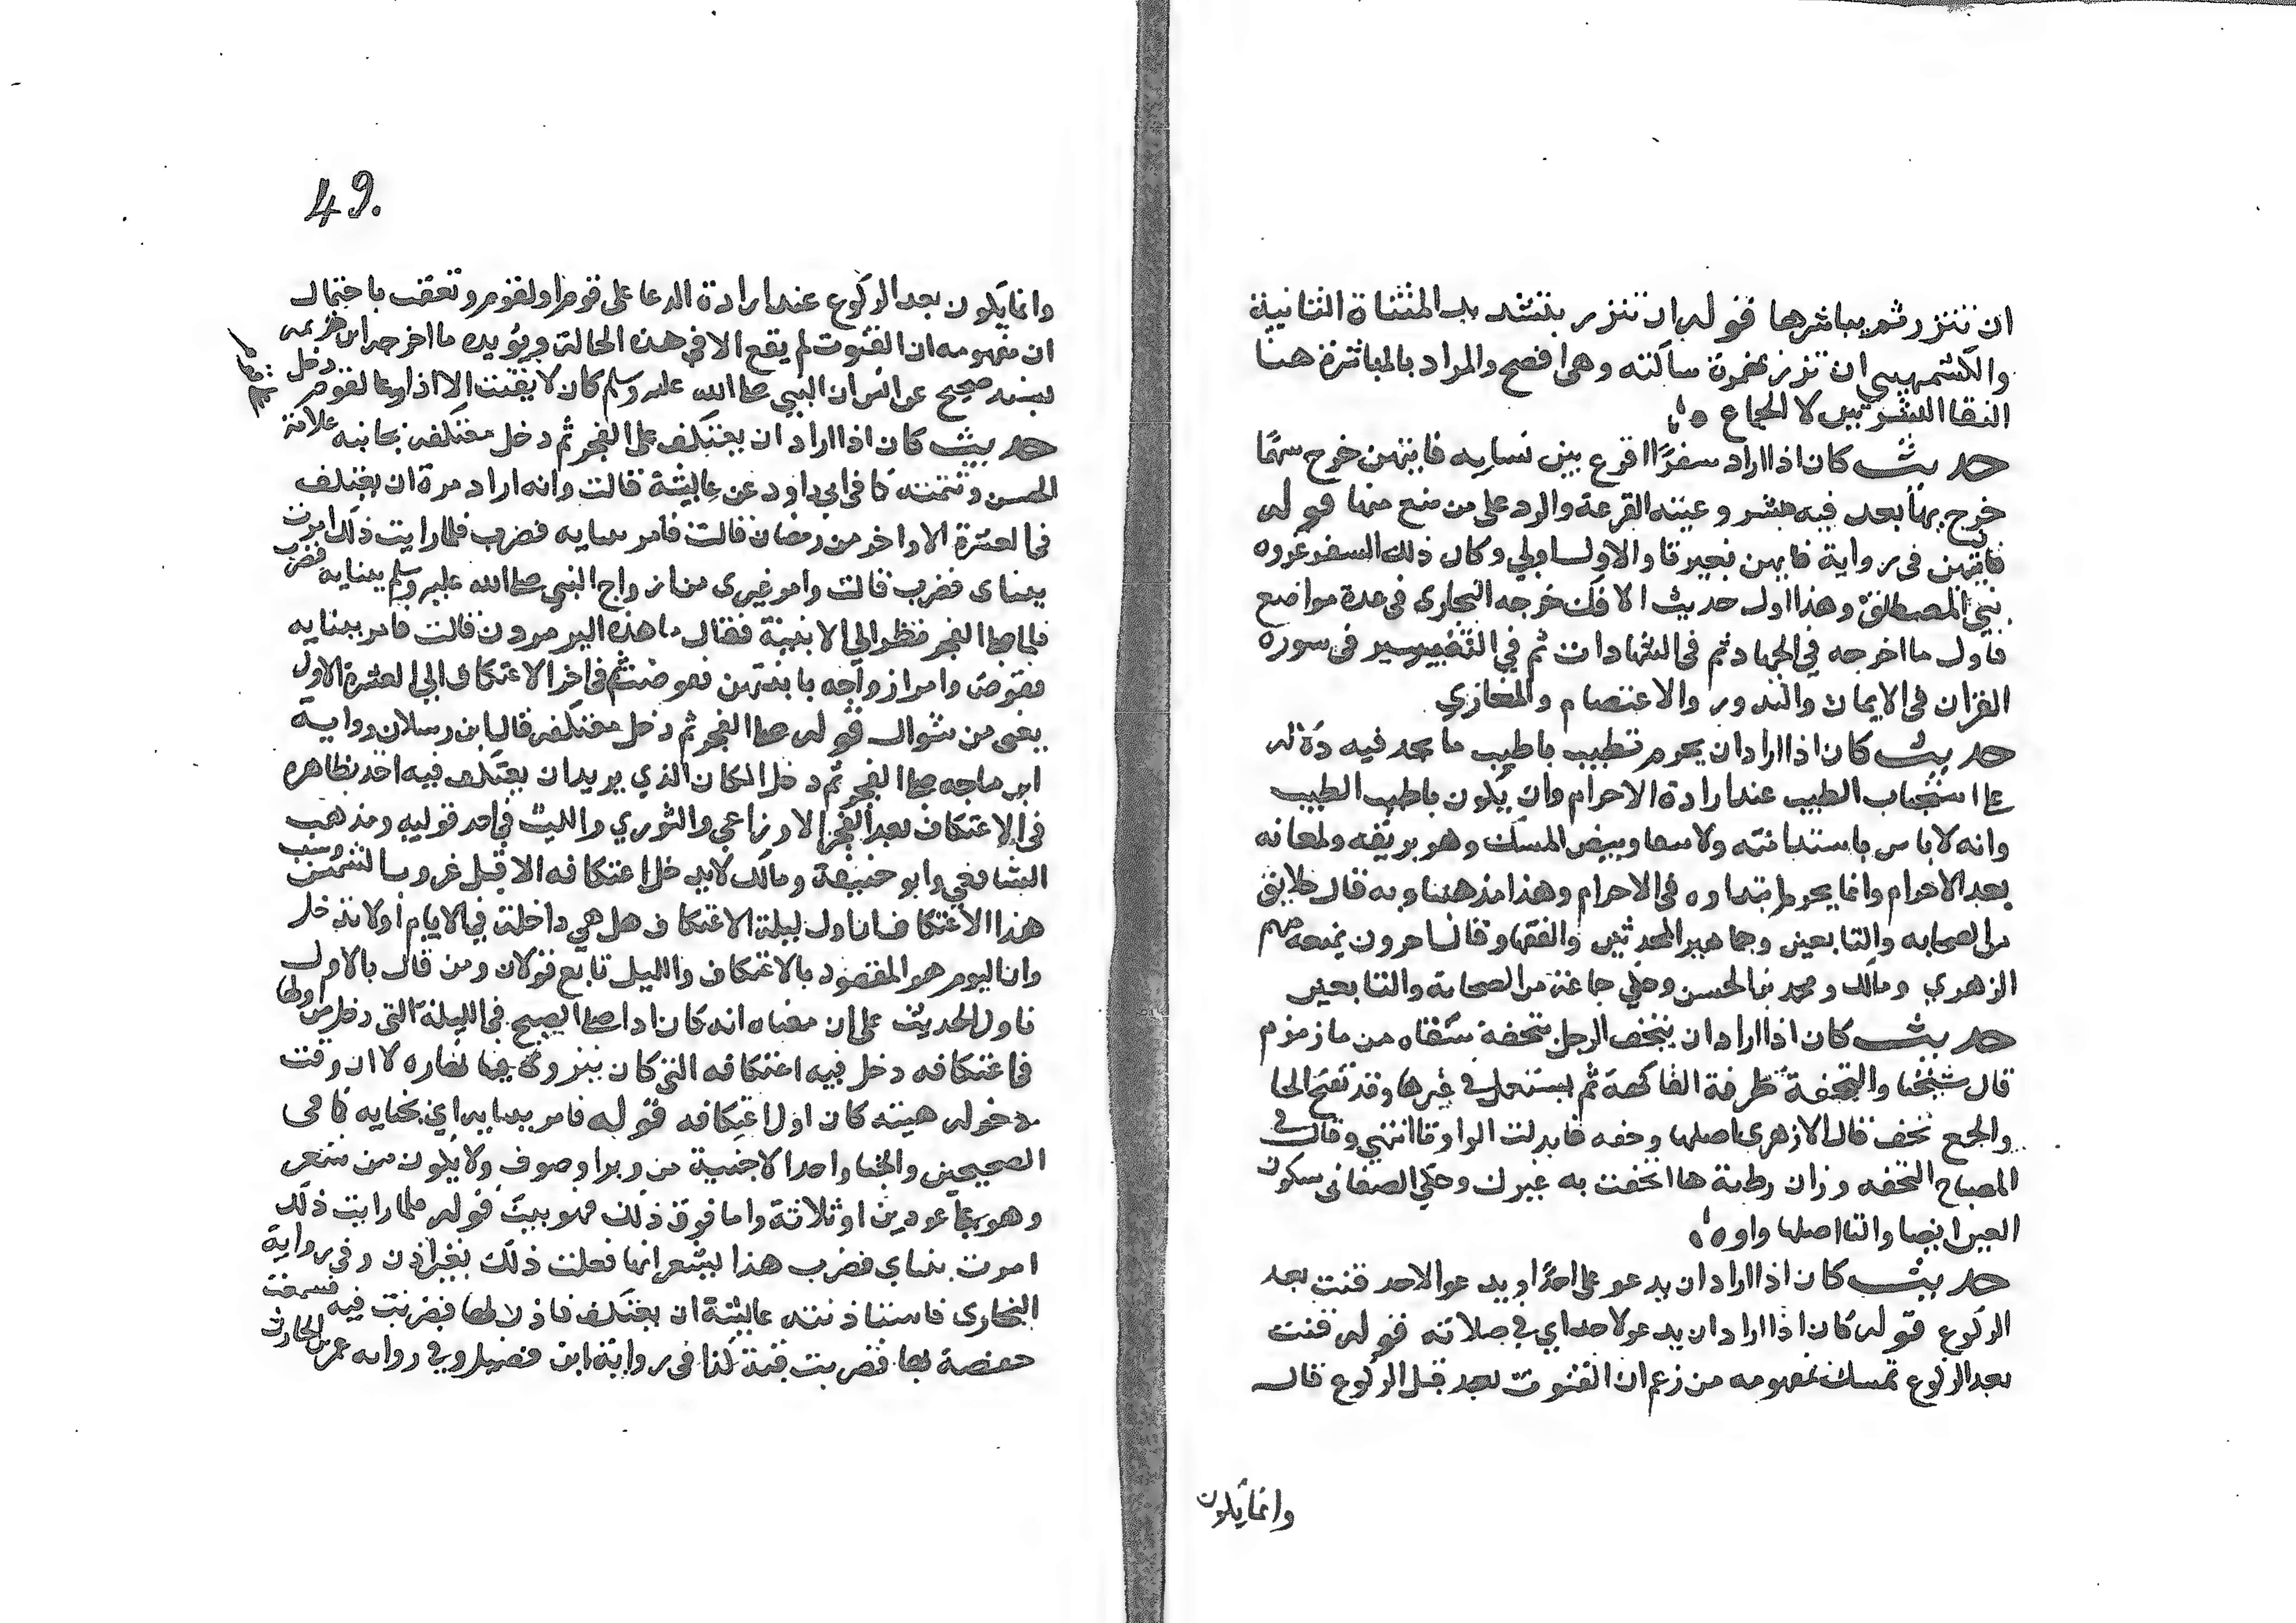 ان تتزر ثم يباشرها قوله ان تتزر بتشديد المثناة الثانية
والكشميهني ان تزر بهمزة ساكنة وهي افصح والمراد بالمباشرة هنا
التقا البشرتين لا الجماع
حديث كان اذا اراد سفرا اقرع بين نسايه فايتهن خرج سهما
خرج بها بعد فيه مشروعيته القرعة والرد على من منع منها قوله
فايتهن في رواية فايهن بغير تا والاول اولى وكان ذلك السفر غزوه
بني المصطلق وهذا اول حديث الافك خرجه البخارى في عدة مواضع
فاول ما اخرجه في الجهاد ثم في الشهادات ثم في التفيسير في سوره
القران في الايمان والندور والاعتصام والمغازي
حديث كان اذا اراد ان يحرم تطيب باطيب ما يجد فيه دلاله
على استحباب الطيب عند ارادة الاحرام وان يكون باطيب الطيب
وانه لاباس باستدامته ولا سما وبيض المسك وهو بريقه ولمعانه
بعد الاحرام وانما يحرم ابتداوه في الاحرام وهذا مذهبنا وبه قال خلايق
من الصحابه والتابعين وجماهير المحدثين والفقها وقال اخرون بمنعه منهم
الزهري ومالك ومحمد بن الحسن وحكي جماعة من الصحابة والتابعين
حديث كان اذا اراد ان يتحف الرجل بتحفة سقاه من ما زمزم
قال شيخنا والتحفة طرفة الفاكهة ثم يستعمل في غيرها وقد تفتح الحا
والجمع تحف قال الازهرى اصلها وحفه فابدلت الواو تا انتهي وقال في
المصباح التحفه وزان رطبة ما اتحفت به غيرك وحكي الصغانى سكون
العين ايضا والتا اصلها واو
حديث كان اذا اراد ان يدعو على احد او يدعو لاحد قنت بعد
الركوع قوله كان اذا اراد ان يدعو لاحد اي في صلاته قوله قنت
بعد الركوع تمسك بمفهومه من زعم ان القنوت بعد قبل الركوع قال
وانما يكون
49.
وانما يكون بعد الركوع عند ارادة الدعا على قوم او لقوم وتعقب باحتمال
ان مفهومه ان القنوت لم يقع الا في هذه الحالة ويؤيده ما اخرجه ابن خزيمه
بسند صحيح عن انس ان النبي صلى الله عليه وسلم كان لا يقنت الا اذا دعا لقوم
حديث كان اذا اراد ان يعتكف صلى الفجر ثم دخل معتكفه بجانبه علامة
الحسن وتتمته كما في ابي داود عن عايشة قالت وانه اراد مرة ان يعتكف
في العشرة الاواخر من رمضان قالت فامر ببنايه فضرب فلما رايت ذلك امرت
ببناى فضرب قالت وامر غيرى من ازواج النبي صلى الله عليه وسلم ببنايه فضرب
فلما صلى الفجر نظر الي الابنية فقال ما هذه البر مردون قالت فامر ببنايه
فقوض وامر ازواجه بابنتهن فقوضت ثم اخر الاعتكاف الى العشرة الاول
يعنى من شوال قوله صلى الفجر ثم دخل معتكفه قال ابن رسلان رواية
ابن ماجه صلى الفجر ثم دخل المكان الذي يريد ان يعتكف فيه اخذ بظاهره
في الاعتكاف بعد الفجر الاوزاعي والثوري والليث في احد قوليه ومذهب
الشافعي وابو حنيفة ومالك لا يدخل اعتكافه الا قبل غروب الشمس وسبب
هذا الاعتكاف ان اول ليلة الاعتكاف هل هي داخلة في الايام او لا تدخل
وان اليوم هو المقصود بالاعتكاف والليل تابع قولان ومن قال بالاول
تاول الحديث على ان معناه انه كان اذا صلى الصبح في الليلة التى دخل من اولها
في اعتكافه دخل فيه اعتكافه التى كان ينزوي فيها نهاره لا ان وقت
دخوله هيته كان اول اعتكافه قوله فامر ببنايه اي بخبايه كما في
الصحيحين والخبا واحد الاخبية من وبر او صوف ولا يكون من شعر
وهو على عودين او ثلاثة واما فوق ذلك فهو بيت قوله فلما رايت ذلك
امرت ببناي فضرب هذا يشعر انها فعلت ذلك بغير اذن وفي رواية
البخارى فاستاذنته عايشة ان يعتكف فاذن لها فضربت فيه فسمعت
حفصة بها فضربت قبة كذا في رواية ابن فضيل وفي روايه عمرو بن الحارث